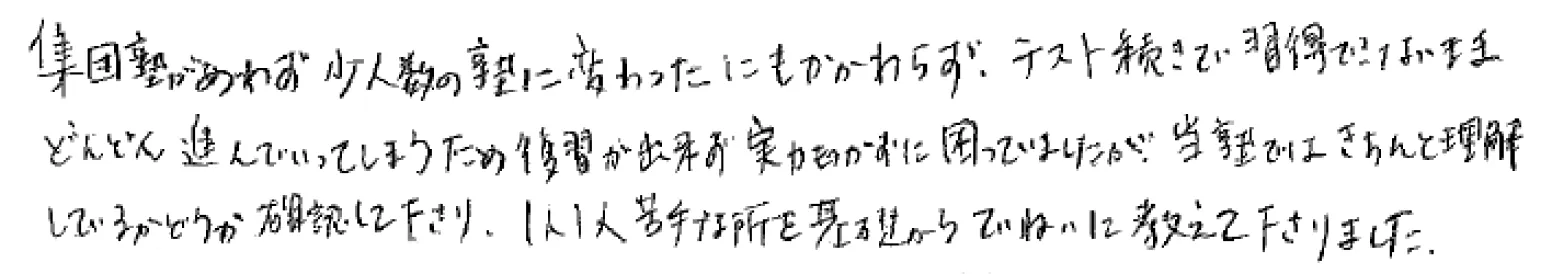 集団塾があわず少人数の塾に変わったにもかかわらず、テスト続きで習得できないまま
どんどん進んでいってしまうため復習が出来ず実力もつかずに困っていましたが、当塾ではきちんと理解
しているかどうか確認して下さり、1人1人苦手な所を基礎からていねいに教えて下さりました。